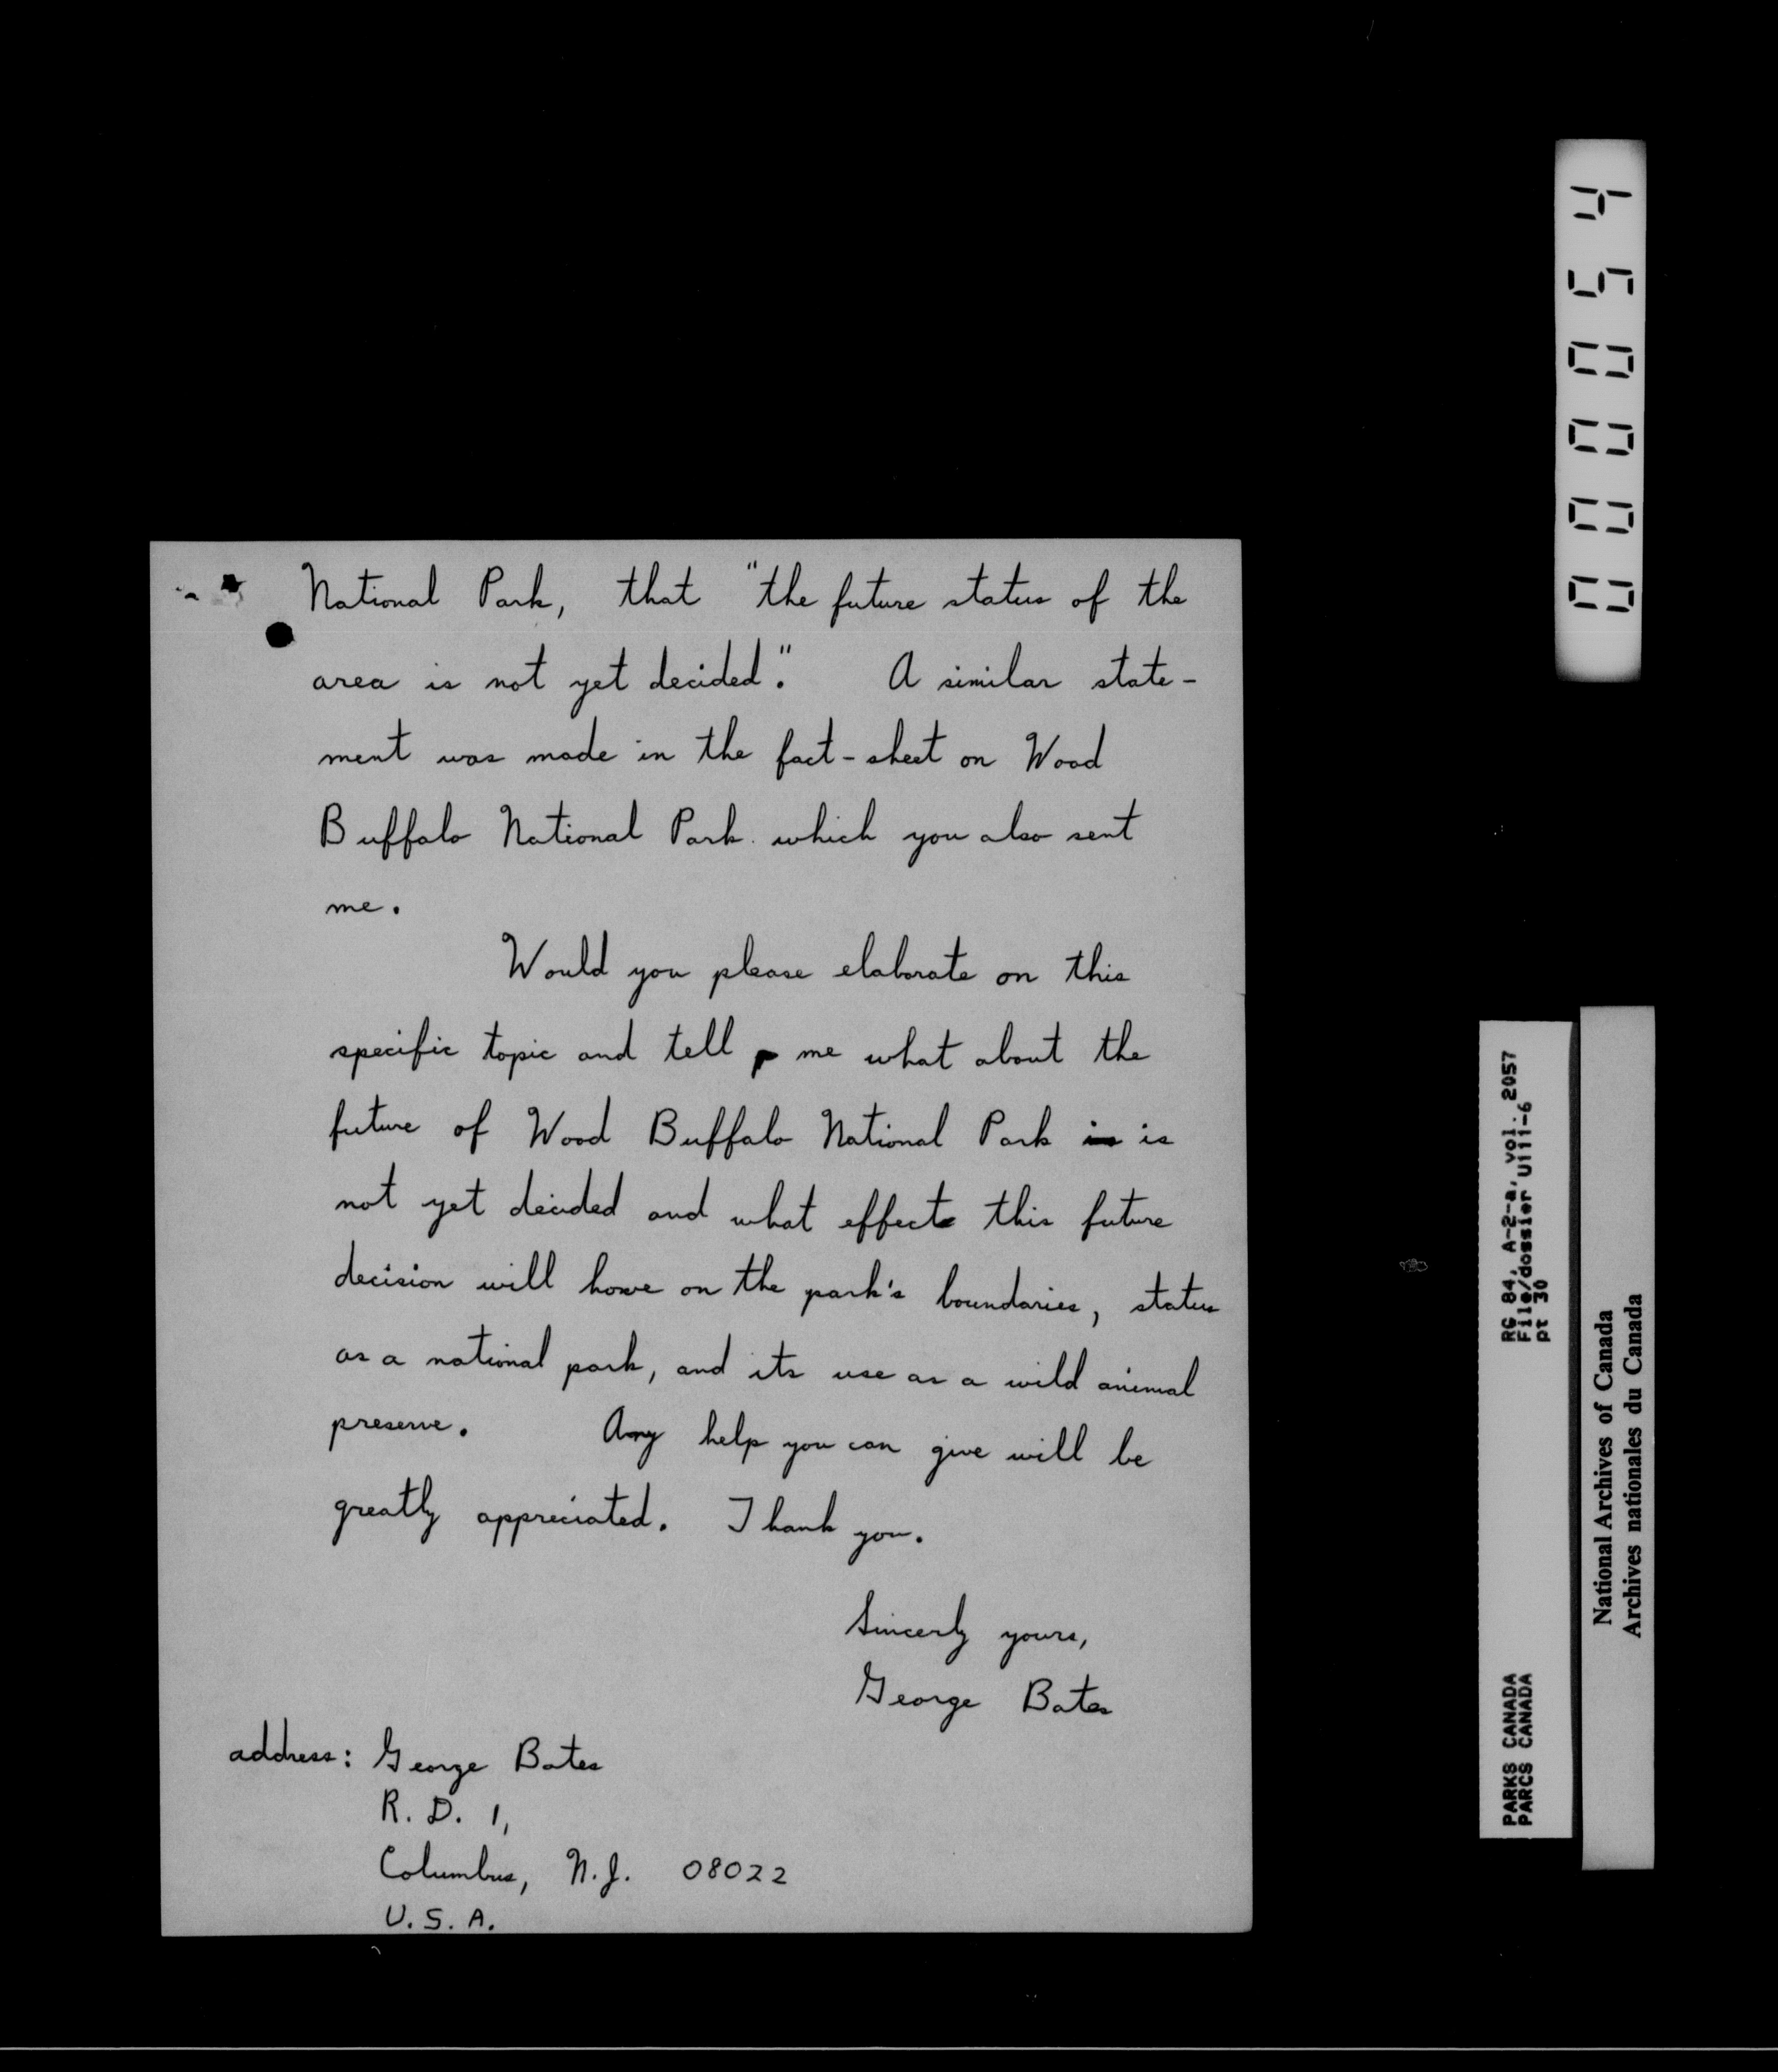 National Park, that "the future status of the
area is not yet decided." A similar state-
ment was made in the fact-sheet on Wood
Buffalo National Park which you also sent
me.
Would you please elaborate on this
specific topic and tell me what about the
future of Wood Buffalo National Park in is
not yet decided and what effects this future
decision will have on the park's boundaries, status
as a national park, and its use as a wild animal
preserve. Any help you can give will be
greatly appreciated. Thank you.
Sincerly yours,
George Bates
address: George Bates
R. D. 1,
Columbus, N.J. 08022
U. S. A.
000054
PARKS CANADA RG 84, A-2-a, vol. 2057
PARCS CANADA File/dossier U111-6
pt 30
National Archives of Canada
Archives nationales du Canada